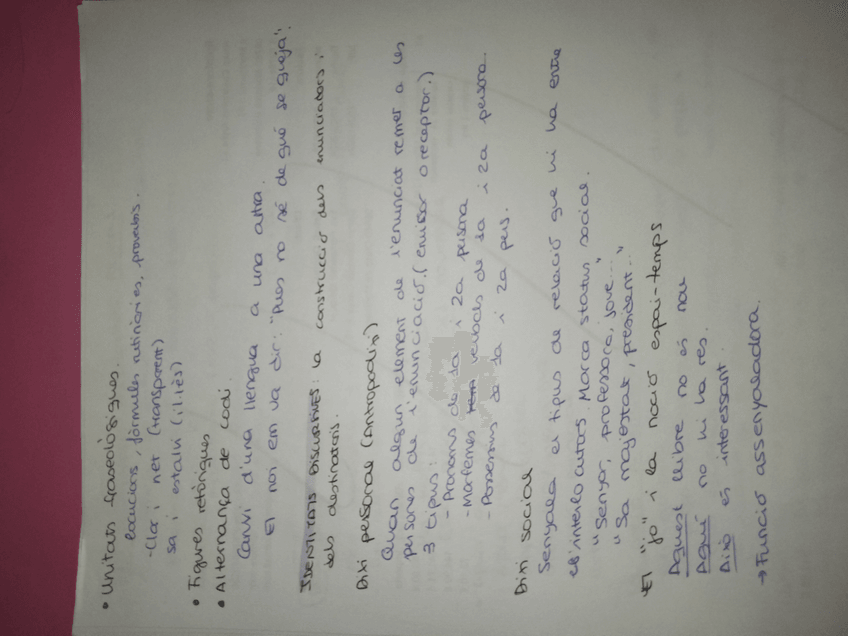 • Unitats fraseològiques.
locucions, fórmules rutinàries, proverbis.
- Clar i net (transparent)
sa i estalvi (il·lès)
• Figures retòriques
• Alternança de codi.
Canvi d'una llengua a una altra.
El noi em va dir: "Pues no sé de qué se queja".
IDENTITATS DISCURSIVES: la construcció dels enunciadors i
dels destinataris.
Dixi personal (Antropodixi)
Quan algun element de l'enunciat remet a les
persones de l'enunciació. (emissor o receptor.)
3 tipus:
- Pronoms de 1a i 2a persona
- Morfemes verbals de 1a i 2a persona.
- Possessius de 1a i 2a pers.
Dixi social
Senyala el tipus de relació que hi ha entre
els interlocutors. Marca status social.
"Senyor, professora, jove..."
"Sa majestat, president..."
El "jo" i la noció espai-temps
Aquest llibre no és nou
Aquí no hi ha res.
Això és interessant.
→ Funció assenyaladora.